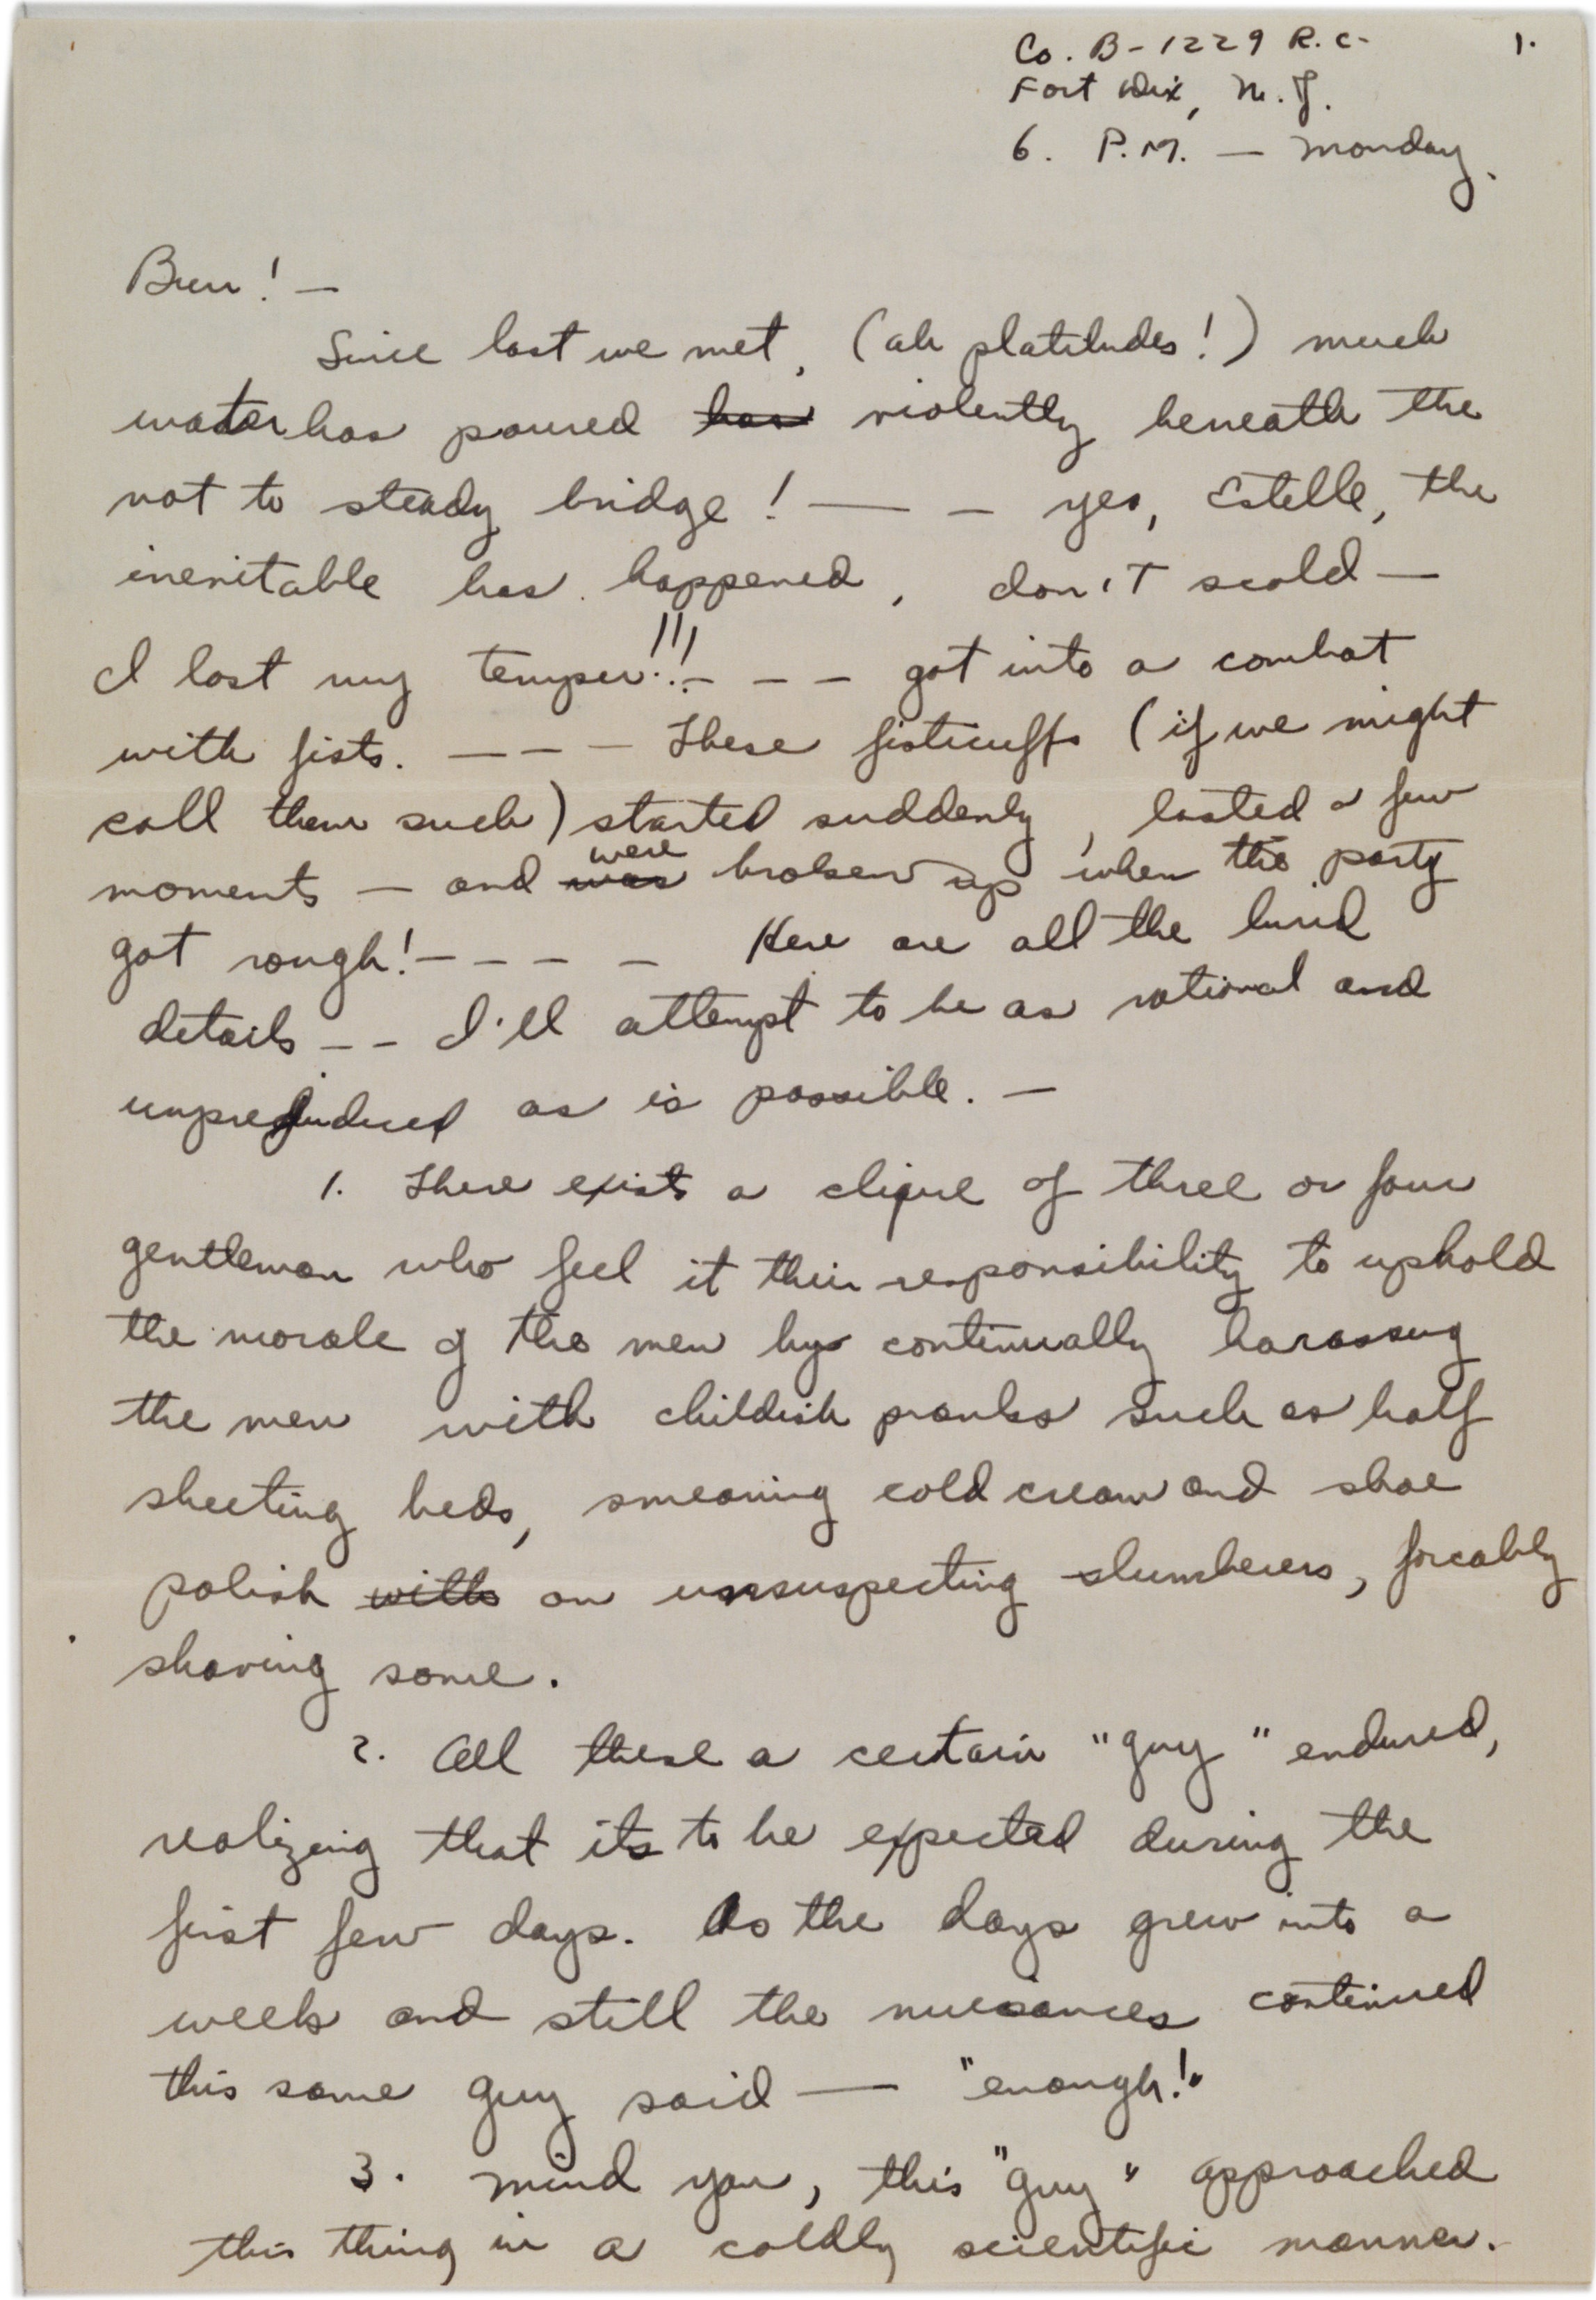 Co. B - 1229 R.C. 1.
Fort Dix, N.J.
6. P.M. — Monday.
Brrr! —
Since last we met, (ah platitudes!) much
water has poured ~~has~~ violently beneath the
not to steady bridge! — — yes, Estelle, the
inevitable has happened, don't scold —
I lost my temper!!! — — — got into a combat
with fists. — — — These fisticuffs (if we might
call them such) started suddenly, lasted a few
moments — and ~~was~~ were broken up when the party
got rough! — — — — Here are all the lurid
details — — I'll attempt to be as rational and
unprejudiced as is possible. —
1. There exists a clique of three or four
gentleman who feel it their responsibility to uphold
the morale of the men by continually harassing
the men with childish pranks such as half
sheeting beds, smearing cold cream and shoe
polish ~~with~~ on unsuspecting slumberers, forcably
shaving some.
2. All these a certain "guy" endured,
realizing that its to be expected during the
first few days. As the days grew into a
week and still the nuisances continued
this same guy said — "enough!"
3. Mind you, this "guy" approached
this thing in a coldly scientific manner.